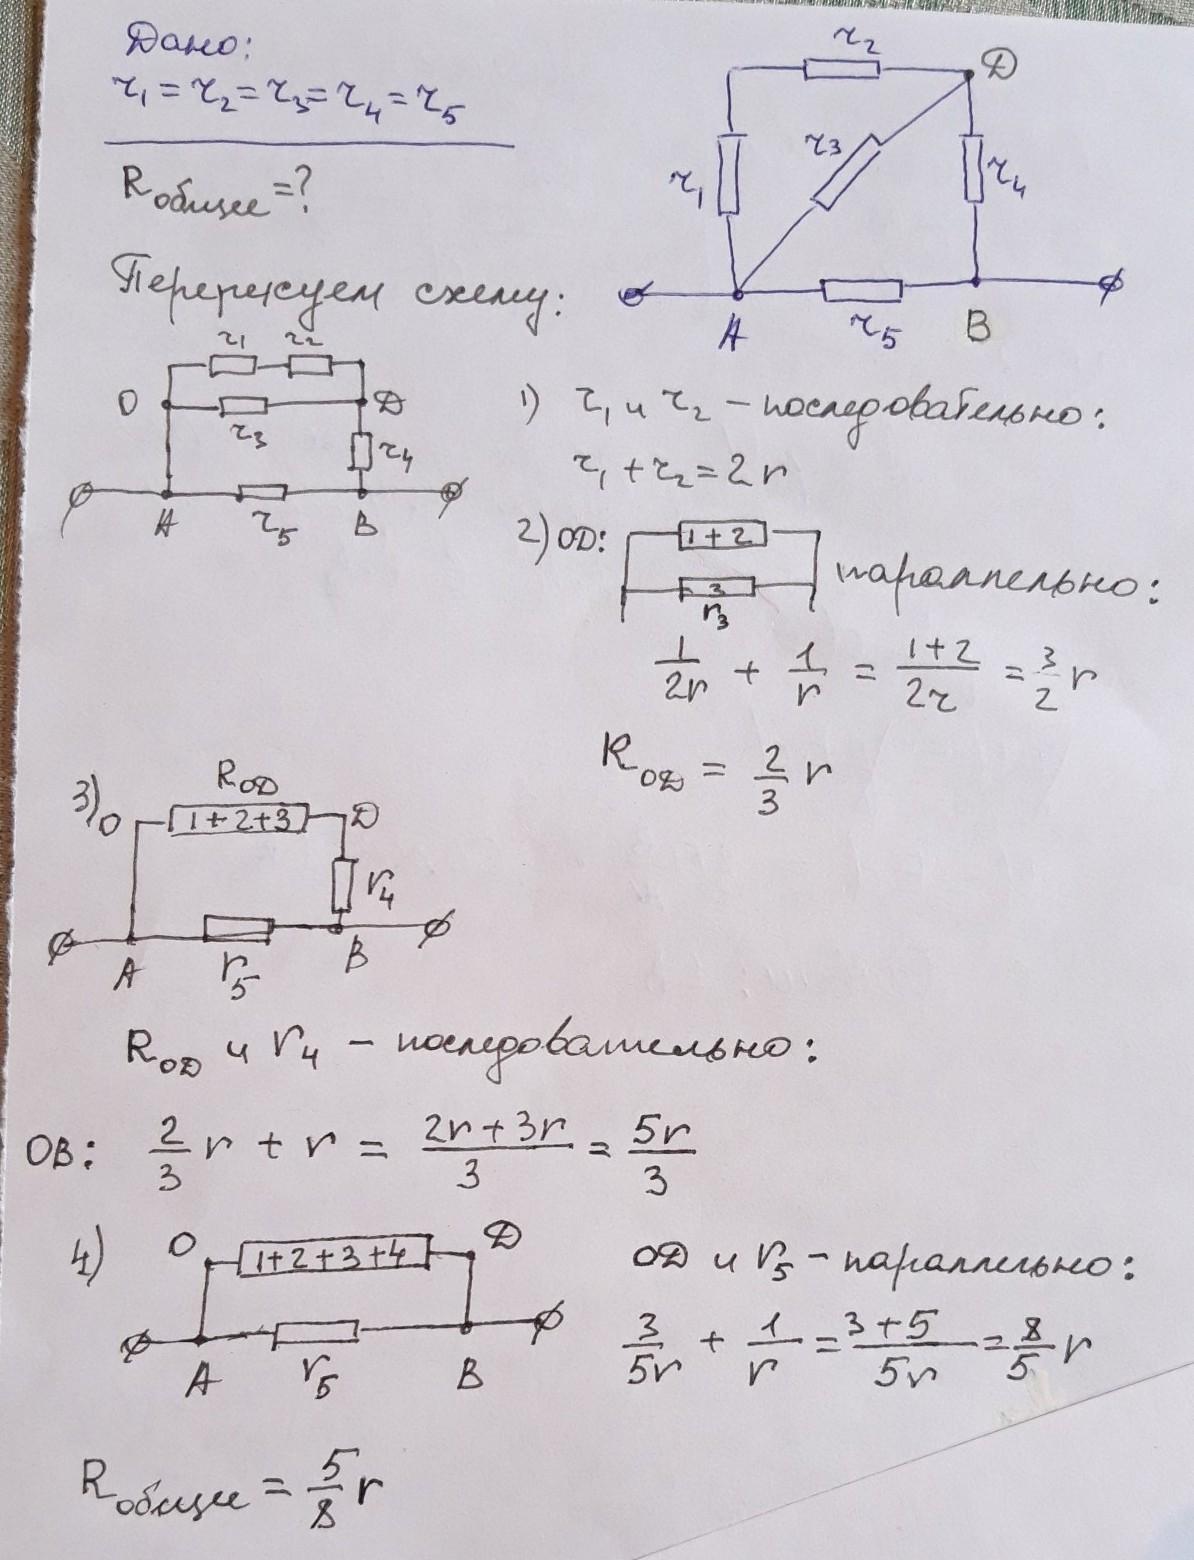 Дано:
r₁ = r₂ = r₃ = r₄ = r₅
Rобщее = ?
r₂
Д
r₃
r₁
r₄
A
r₅
B
Перерисуем схему:
r₁ r₂
O
Д
r₃
r₄
A
r₅
B
1) r₁ и r₂ – последовательно:
r₁ + r₂ = 2r
2) OД:
1+2
3
r₃
параллельно:
1/2r + 1/r = 1+2/2r = 3/2 r
RОД = 2/3 r
3)
RОД
O
1+2+3
Д
r₄
A
r₅
B
RОД и r₄ – последовательно:
OB: 2/3 r + r = 2r+3r/3 = 5r/3
4)
O
1+2+3+4
Д
A
r₅
B
OД и r₅ – параллельно:
3/5r + 1/r = 3+5/5r = 8/5 r
Rобщее = 5/8 r